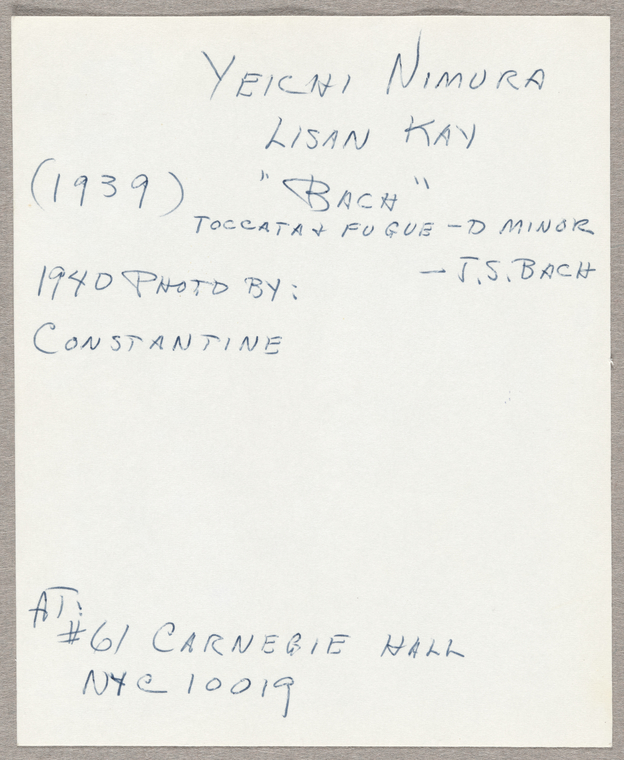 YEICHI NIMURA
LISAN KAY
(1939) "BACH"
TOCCATA & FUGUE - D MINOR
- J.S. BACH
1940 PHOTO BY:
CONSTANTINE
AT:
#61 CARNEGIE HALL
NYC 10019